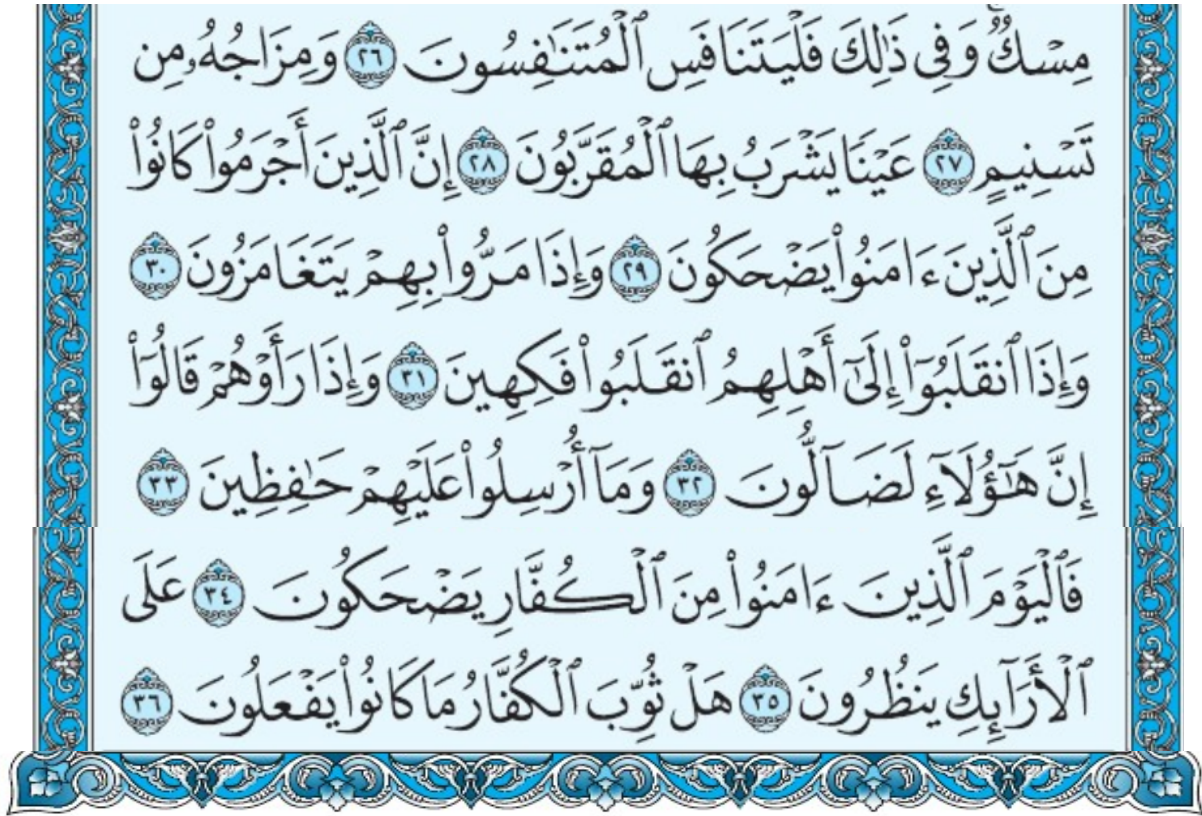 مِسْكٌ ۚ وَفِى ذَٰلِكَ فَلْيَتَنَافَسِ ٱلْمُتَنَٰفِسُونَ ٢٦ وَمِزَاجُهُۥ مِن
تَسْنِيمٍ ٢٧ عَيْنًا يَشْرَبُ بِهَا ٱلْمُقَرَّبُونَ ٢٨ إِنَّ ٱلَّذِينَ أَجْرَمُوا۟ كَانُوا۟
مِنَ ٱلَّذِينَ ءَامَنُوا۟ يَضْحَكُونَ ٢٩ وَإِذَا مَرُّوا۟ بِهِمْ يَتَغَامَزُونَ ٣٠
وَإِذَا ٱنقَلَبُوٓا۟ إِلَىٰٓ أَهْلِهِمُ ٱنقَلَبُوا۟ فَكِهِينَ ٣١ وَإِذَا رَأَوْهُمْ قَالُوٓا۟
إِنَّ هَٰٓؤُلَآءِ لَضَآلُّونَ ٣٢ وَمَآ أُرْسِلُوا۟ عَلَيْهِمْ حَٰفِظِينَ ٣٣
فَٱلْيَوْمَ ٱلَّذِينَ ءَامَنُوا۟ مِنَ ٱلْكُفَّارِ يَضْحَكُونَ ٣٤ عَلَى
ٱلْأَرَآئِكِ يَنظُرُونَ ٣٥ هَلْ ثُوِّبَ ٱلْكُفَّارُ مَا كَانُوا۟ يَفْعَلُونَ ٣٦